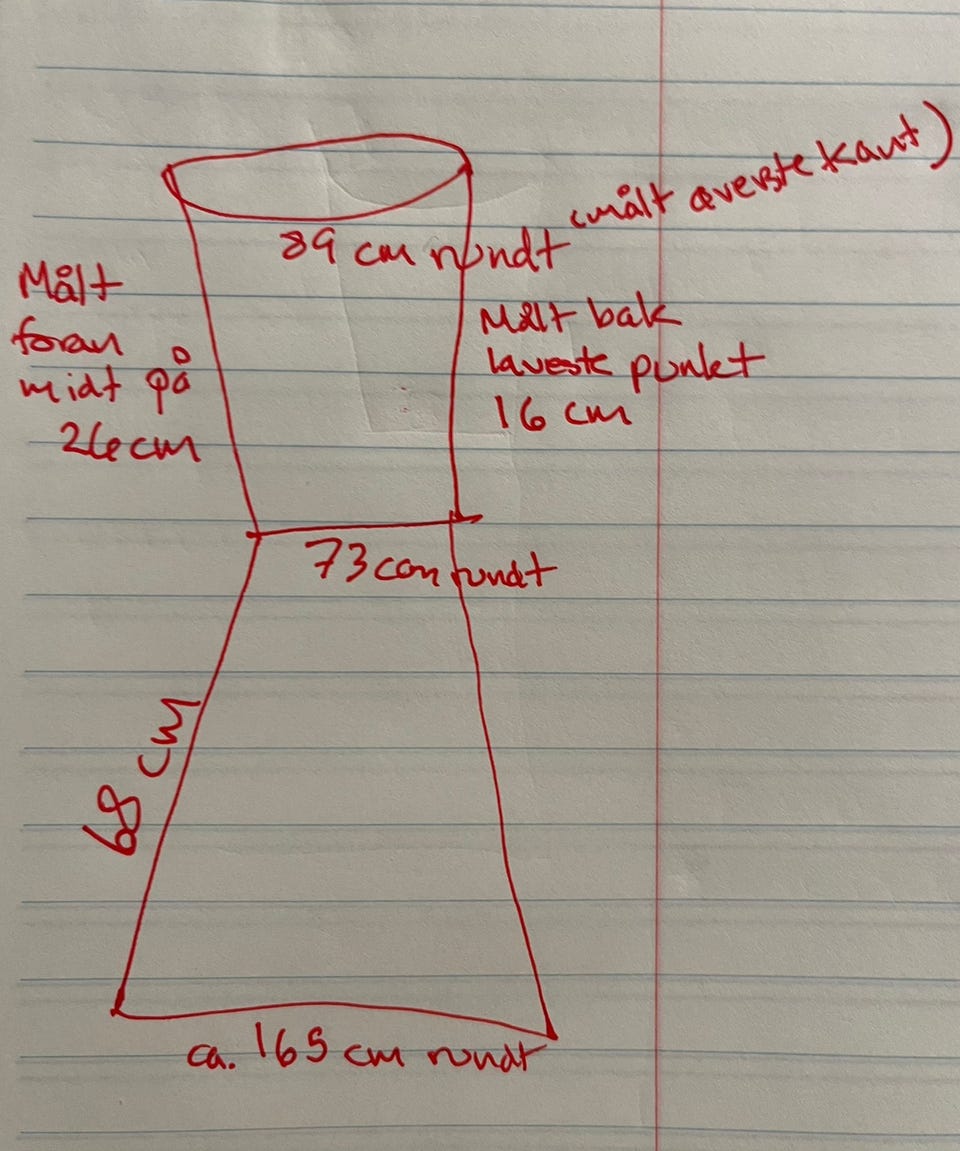 (målt øverste kant)
89 cm rundt
Målt
foran
midt på
26cm
Målt bak
laveste punkt
16 cm
73 cm rundt
68 cm
ca. 165 cm rundt